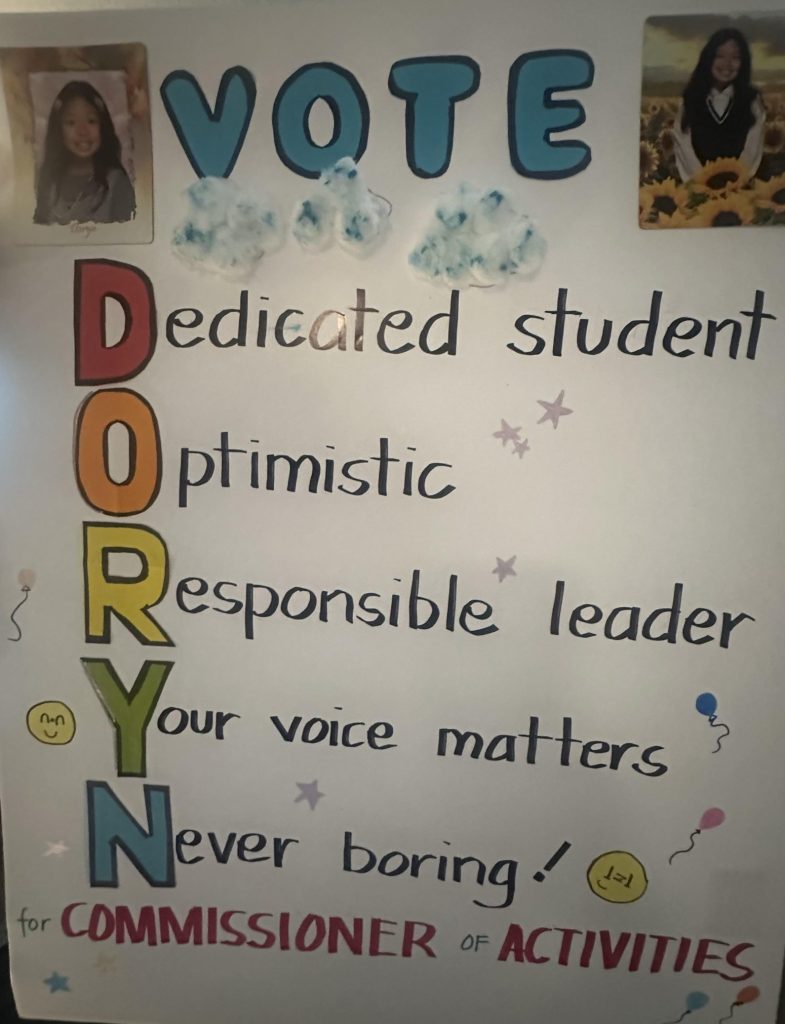 VOTE
Dedicated student
Optimistic
Responsible leader
Your voice matters
Never boring!
for COMMISSIONER OF ACTIVITIES